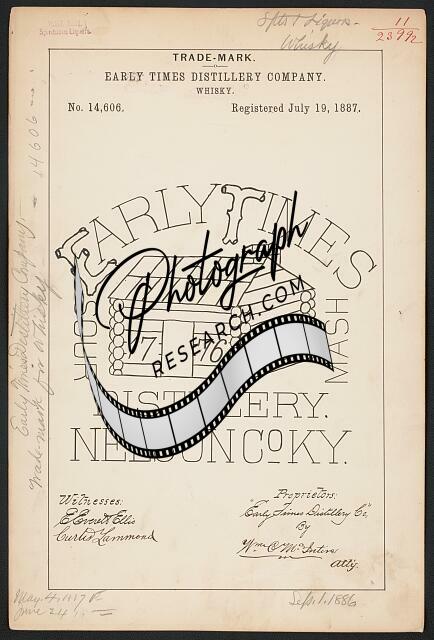 Spts & Liquors.
Whisky
11
23992
TRADE-MARK.
EARLY TIMES DISTILLERY COMPANY.
WHISKY.
No. 14,606.
Registered July 19, 1887.
EARLY TIMES
SOUR
MASH
76
DISTILLERY.
NELSON Co KY.
Photograph
RESEARCH.COM
Early Times Distillery Company.
Trade-mark for Whisky
14606
Witnesses:
E. Everett Ellis
Curtis Lammond
Proprietors:
"Early Times Distillery Co",
By
Wm C McIntire
Atty.
May. 4, 1117
June 24
Sep. 1. 1886